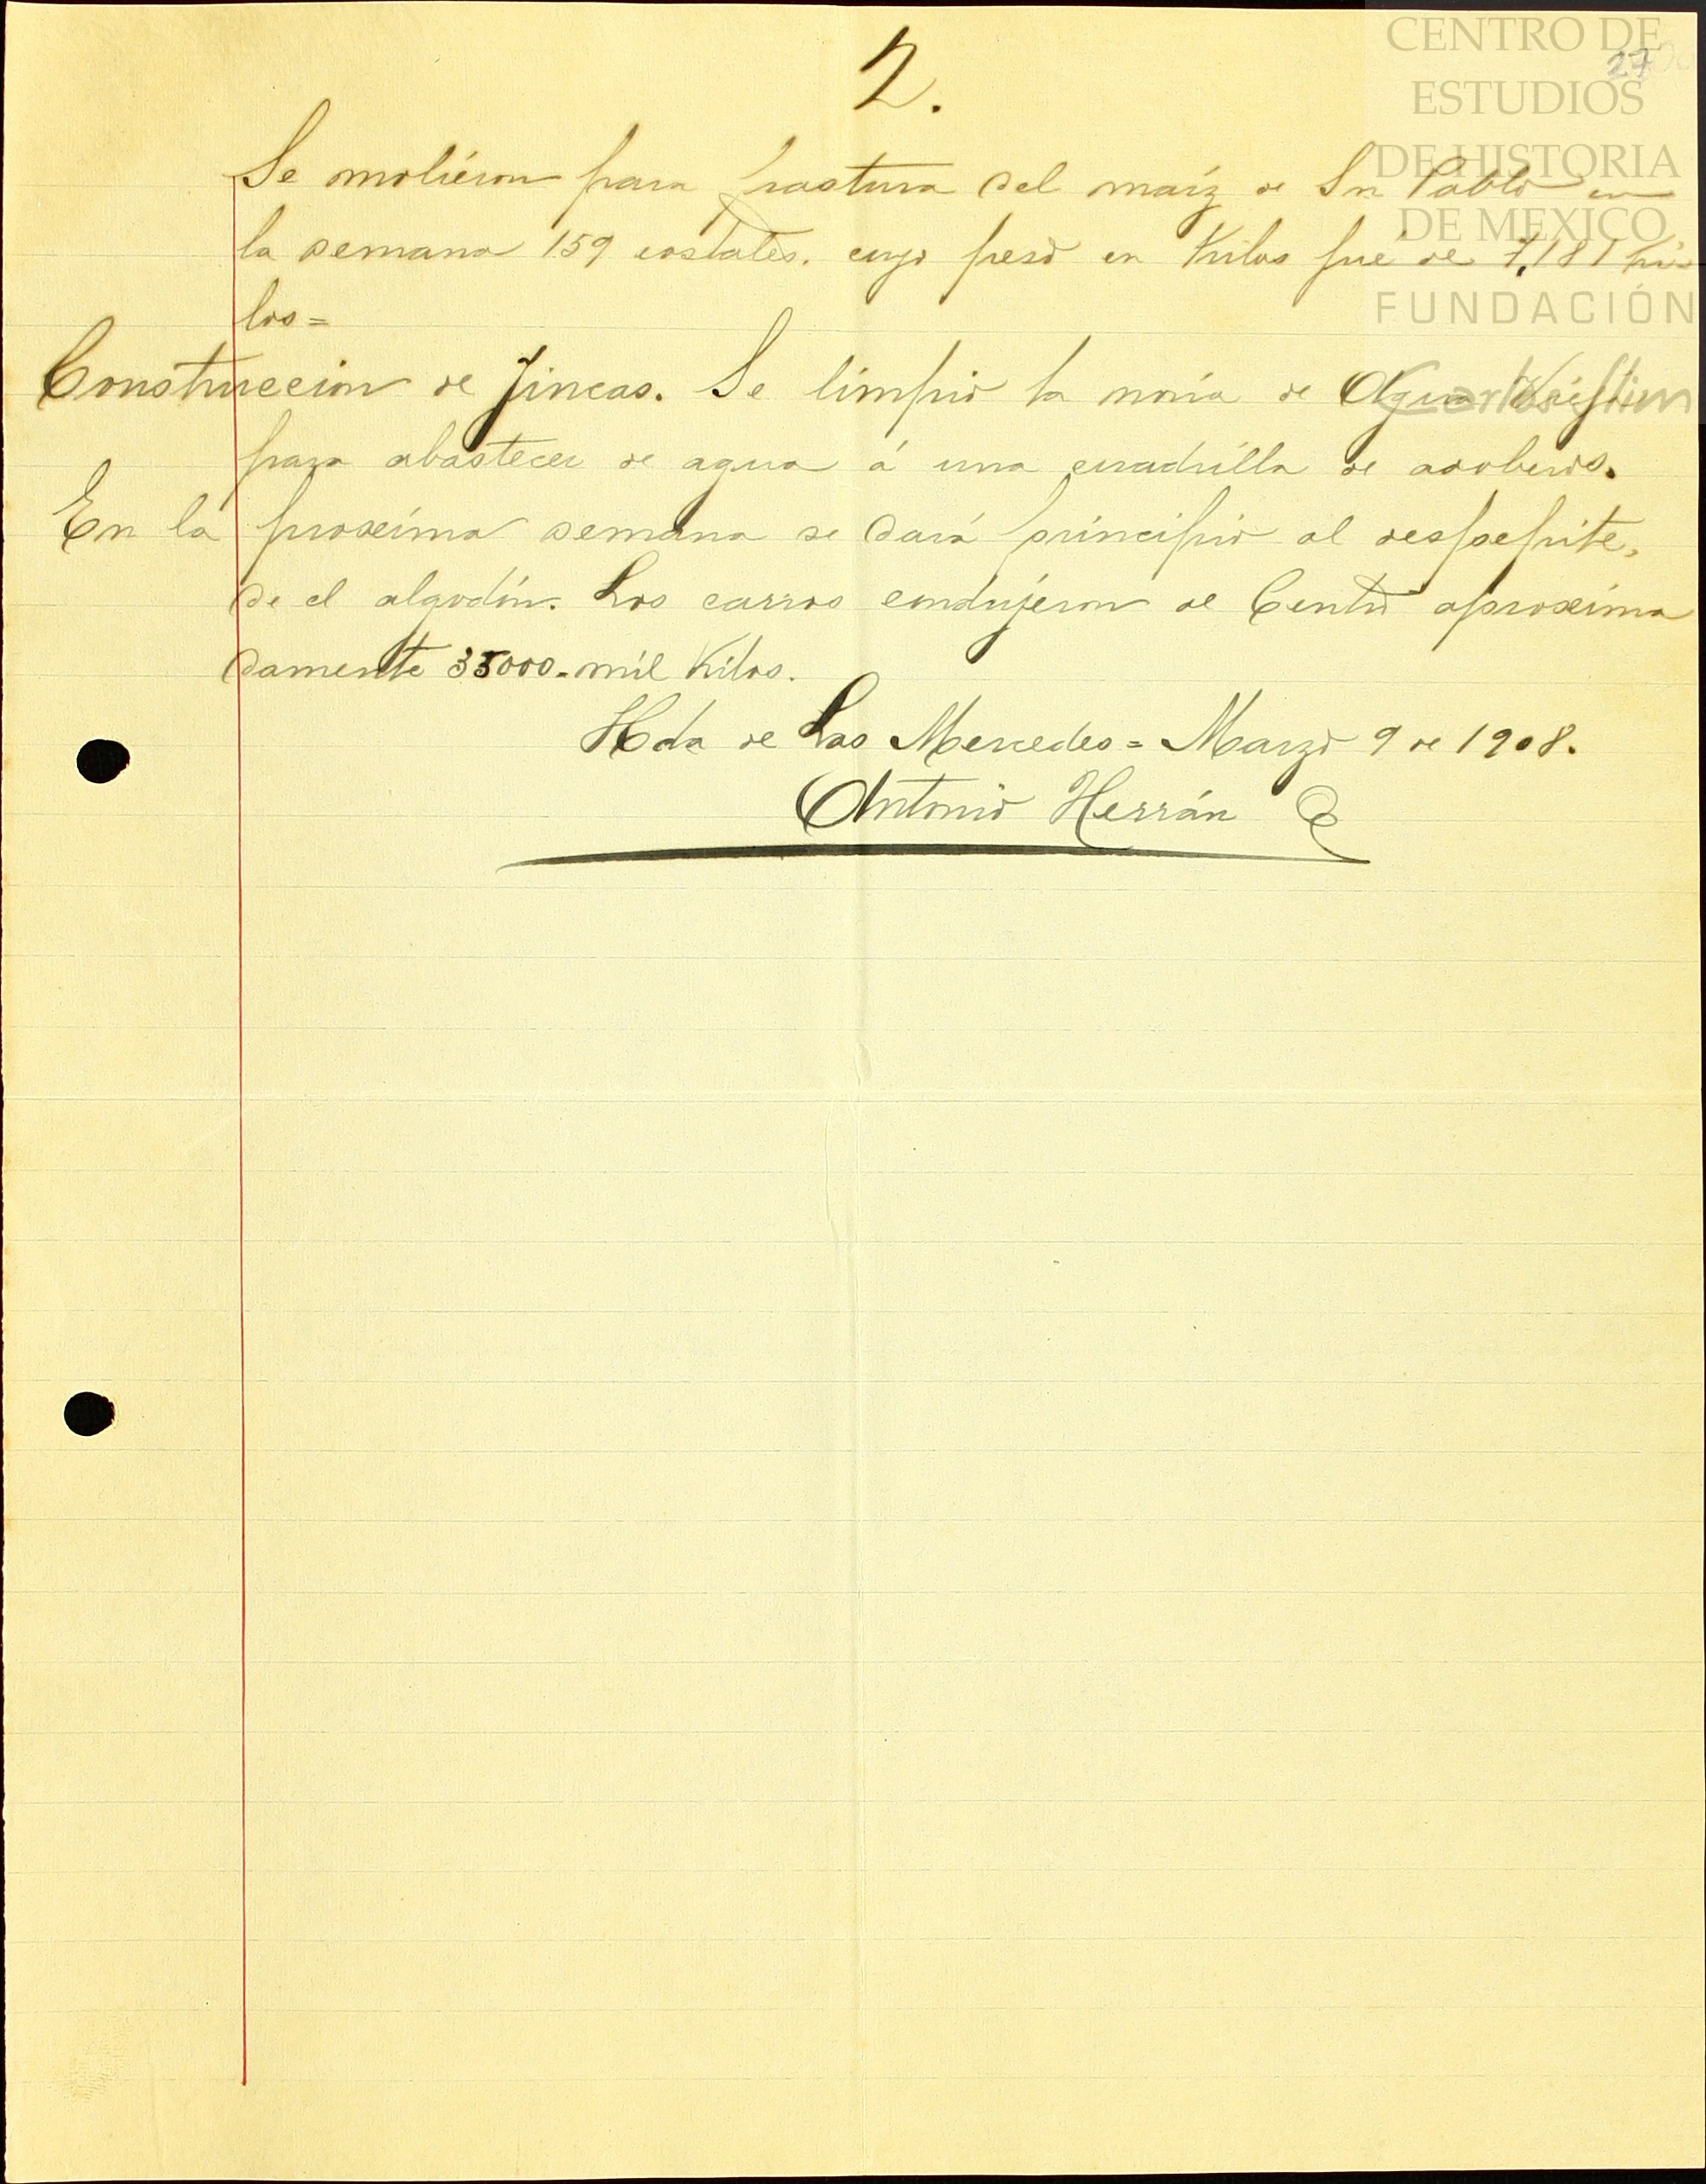 2.
27
CENTRO DE
ESTUDIOS
DE HISTORIA
DE MEXICO
FUNDACIÓN
Carlos Slim
Se moliéron para pastura del maíz de Sn Pablo en
la semana 159 costales. cuyo peso en Kilos fué de 7,181 ki
los=
Construccion de fincas. Se limpió la noria de Agua
para abastecer de agua á una cuadrilla de adoberos.
En la proxima semana se dará principio al despepite,
de el algodón. Los carros condujeron al Centro aproxima
damente 35000-mil Kilos.
Hda de Las Mercedes = Marzo 9 de 1908.
Antonio Herrán